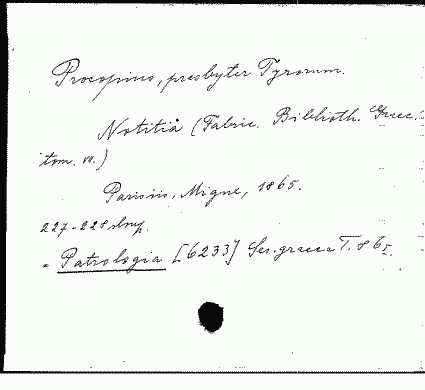 Procopius, presbyter Tyrorum.
Notitia (Fabric. Biblioth. Graec.
tom. VI.)
Parisiis, Migne, 1865.
227-228 shmp.
Patrologia [6233] Ser. graeca T. 86